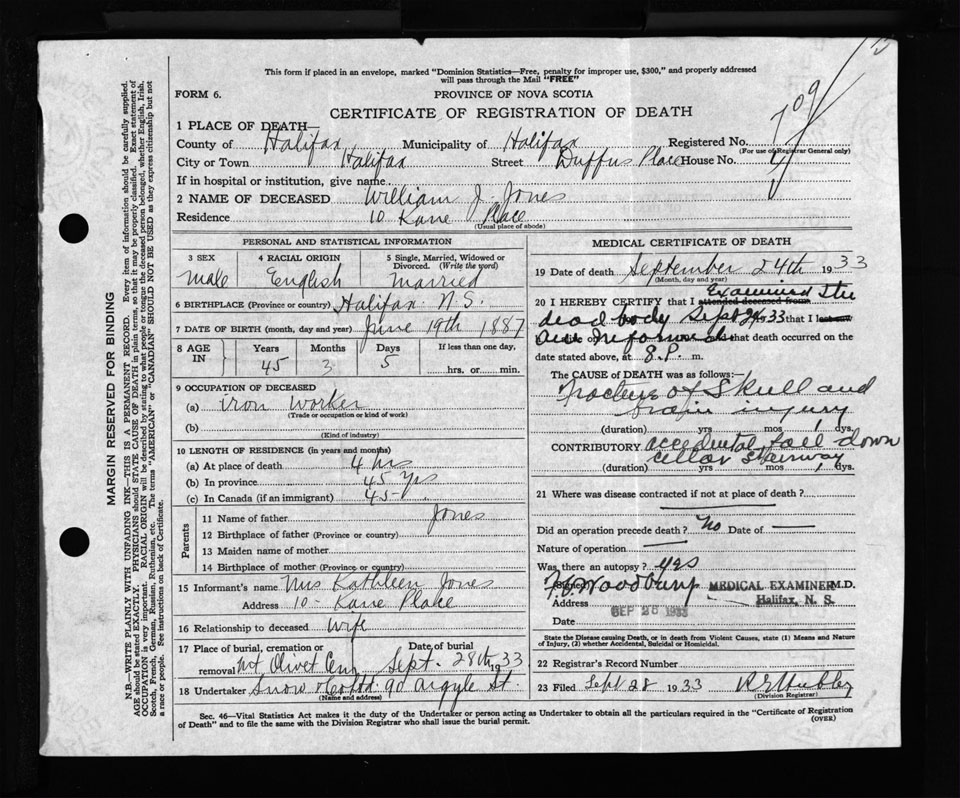 This form if placed in an envelope, marked "Dominion Statistics—Free, penalty for improper use, $300," and properly addressed
will pass through the Mail "FREE"
FORM 6.
PROVINCE OF NOVA SCOTIA
CERTIFICATE OF REGISTRATION OF DEATH
709
1 PLACE OF DEATH—
County of Halifax Municipality of Halifax Registered No.
(For use of Registrar General only)
City or Town Halifax Street Duffus Place House No. 4
If in hospital or institution, give name
2 NAME OF DECEASED William J. Jones
Residence 10 Kane Place
(Usual place of abode)
PERSONAL AND STATISTICAL INFORMATION
3 SEX 4 RACIAL ORIGIN 5 Single, Married, Widowed or
Divorced. (Write the word)
male English Married
6 BIRTHPLACE (Province or country) Halifax N.S.
7 DATE OF BIRTH (month, day and year) June 19th 1887
8 AGE IN Years Months Days If less than one day,
45 3 5 hrs. or min.
9 OCCUPATION OF DECEASED
(a) iron worker
(Trade or occupation or kind of work)
(b)
(Kind of industry)
10 LENGTH OF RESIDENCE (in years and months)
(a) At place of death 4 hrs
(b) In province 45 yrs
(c) In Canada (if an immigrant) 45
Parents
11 Name of father Jones
12 Birthplace of father (Province or country)
13 Maiden name of mother
14 Birthplace of mother (Province or country)
15 Informant's name Mrs Kathleen Jones
Address 10 - Kane Place
16 Relationship to deceased Wife
17 Place of burial, cremation or Date of burial
removal Mt Olivet Cem Sept. 28th 1933
18 Undertaker Snow 90 Argyle St.
(Name and address)
MEDICAL CERTIFICATE OF DEATH
19 Date of death September 24th 1933
(Month, day and year)
20 I HEREBY CERTIFY that I attended deceased from Examined the
dead body Sept 24 33 that I last saw
am informed that death occurred on the
date stated above, at 8.P. m.
The CAUSE of DEATH was as follows:—
Fracture of Skull and
brain injury
(duration) yrs mos 1 dys.
CONTRIBUTORY accidental fall down
cellar stairway
(duration) yrs mos 1 dys.
21 Where was disease contracted if not at place of death?
Did an operation precede death? No Date of —
Nature of operation —
Was there an autopsy? yes
MEDICAL EXAMINER M.D.
Address Halifax, N. S.
SEP 26 1933
Date
State the Disease causing Death, or in death from Violent Causes, state (1) Means and Nature
of Injury, (2) whether Accidental, Suicidal or Homicidal.
22 Registrar's Record Number
23 Filed Sept 28 1933
(Division Registrar)
Sec. 46—Vital Statistics Act makes it the duty of the Undertaker or person acting as Undertaker to obtain all the particulars required in the "Certificate of Registration
of Death" and to file the same with the Division Registrar who shall issue the burial permit. (OVER)
MARGIN RESERVED FOR BINDING
N.B.—WRITE PLAINLY WITH UNFADING INK—THIS IS A PERMANENT RECORD. Every item of information should be carefully supplied.
AGE should be stated EXACTLY. PHYSICIANS should STATE CAUSE OF DEATH in plain terms, so that it may be properly classified. Exact statement of
OCCUPATION is very important. RACIAL ORIGIN will be described by stating to what people or tongue the deceased person belonged, whether English, Irish,
Scotch, French, German, Russian, Ruthenian, etc. The terms "AMERICAN" or "CANADIAN" SHOULD NOT BE USED as they express citizenship but not
a race or people. See instructions on back of Certificate.